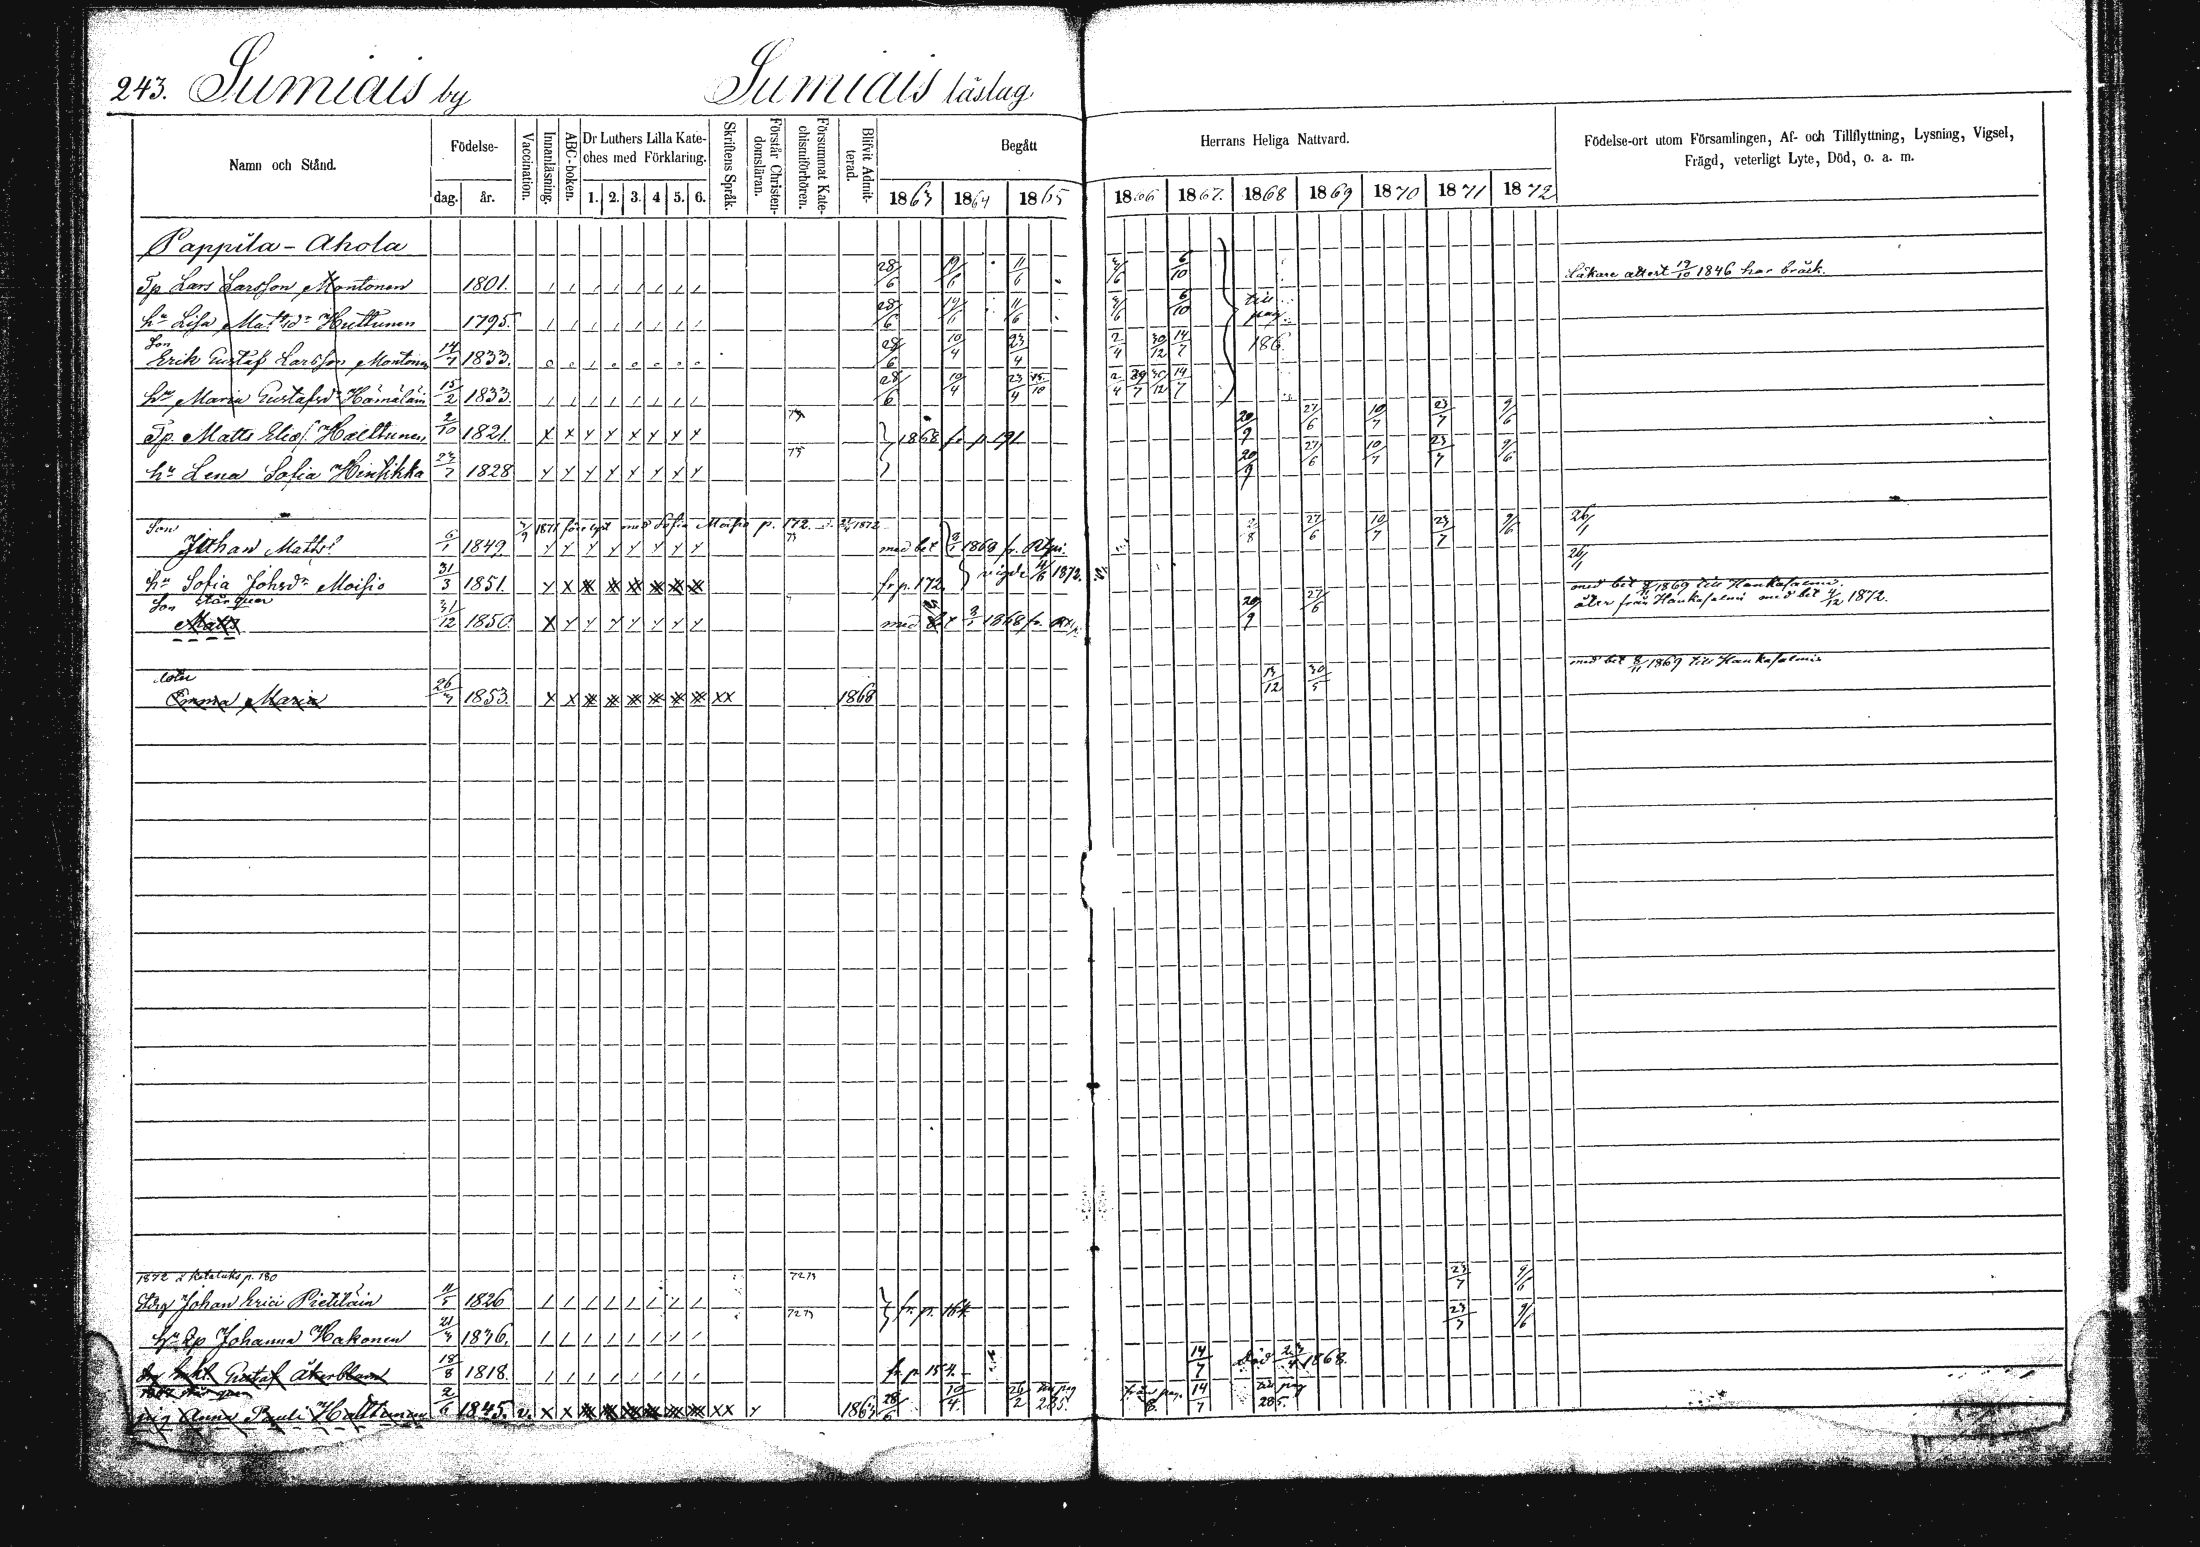 243. Sumiais by Sumiais läslag
Namn och Stånd. Födelse- dag. år. Vaccination. Innanläsning. ABC-boken. Dr Luthers Lilla Kateches med Förklaring. 1. 2. 3. 4 5. 6. Skriftens Språk. Förstår Christendomsläran. Försummat Katechismiförhören. Blifvit Admitterad. Begått Herrans Heliga Nattvard. Födelse-ort utom Församlingen, Af- och Tillflyttning, Lysning, Vigsel, Frägd, veterligt Lyte, Död, o. a. m.
1863 1864 1865 1866 1867. 1868 1869 1870 1871 1872
Pappila - Ahola
Tp Lars Larsson Montonen 1801. 28/6 11/6 6/10 Läkare attest 19/10 1846 har bråck.
hu Lisa Mattsdr Huttunen 1795. 28/6 11/6 6/10 till pag. 186
Son
Erik Gustaf Larsson Montonen 14/7 1833. 28/6 10/4 23/4 2/4 30/12 14/7
hu Maria Gustafsdr Hämäläin 15/2 1833. 28/6 10/4 23/4 2/4 29/7 30/12 14/7
Tp. Matts Elias. Halttunen 2/10 1821. 73 1868 fr. p 191 20/9 27/6 10/7 23/7 9/6
hu Lena Sofia Hintikka 23/7 1828 73 20/9 27/6 10/7 23/7 9/6
Son 1871 för lyst med Sofia Moisio p. 172. 1872
Johan Matts. 6/1 1849 73 med bet 3/1 1869 fr. 27/6 10/7 23/7 9/6 26/1
hu Sofia Johsdr Moisio 31/3 1851. fr p. 172. vigde 4/6 1872. 26/1
Son står quar
Matts 31/12 1850. med bet 3/1 1868 fr. 20/9 27/6 med bet 8/11 1869 till Hankasalmi.
åter från Hankasalmi med bet 4/12 1872.
dotter
Emma Maria 26/7 1853. XX 1868 13/12 30/5 med bet 8/11 1869 till Hankasalmis
1872 p. 180
Johan Erici Pietiläin 11/5 1826 72 73 fr. p. 164. 23/7 9/6
hu Johanna Hakonen 21/7 1836. 72 73 23/7 9/6
Gustaf Åkerblom 18/8 1818. fr p 154. 14/7 död 23/4 1868.
1867 står quar
pig Anna Pauli Halttunen 2/6 1845. v. XX 1863 28/6 10/4 26/2 till pag 285 från pag. 8. 14/7 till pag 285.